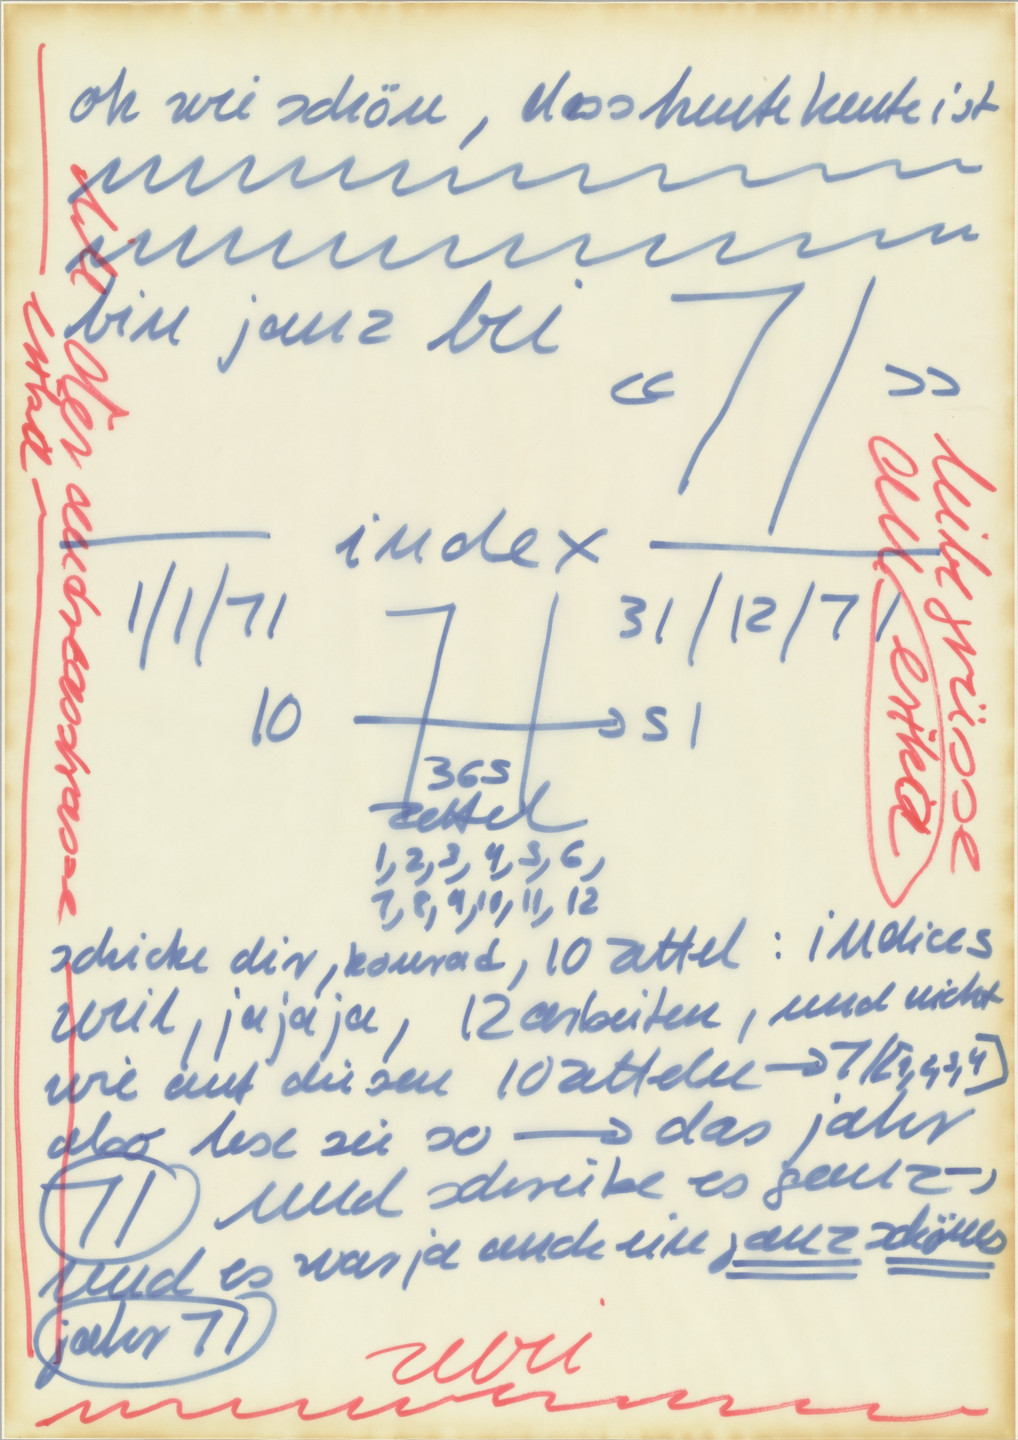 oh wie schön, dass heute heute ist
bin janz bei
« 71 »
index
1/1/71 31/12/71
71
10 → 51
365
zettel
1, 2, 3, 4, 5, 6,
7, 8, 9, 10, 11, 12
schicke dir, konrad, 10 zettel : indices
weil, jajaja, 12 arbeiten, und nicht
wie auf diesen 10 zetteln → 71[1,2,3,4]
also lese sie so → das jahr
71 und schreibe es ganz-,
und es war ja auch ein janz schönes
jahr 71
liebe grüsse
an erika